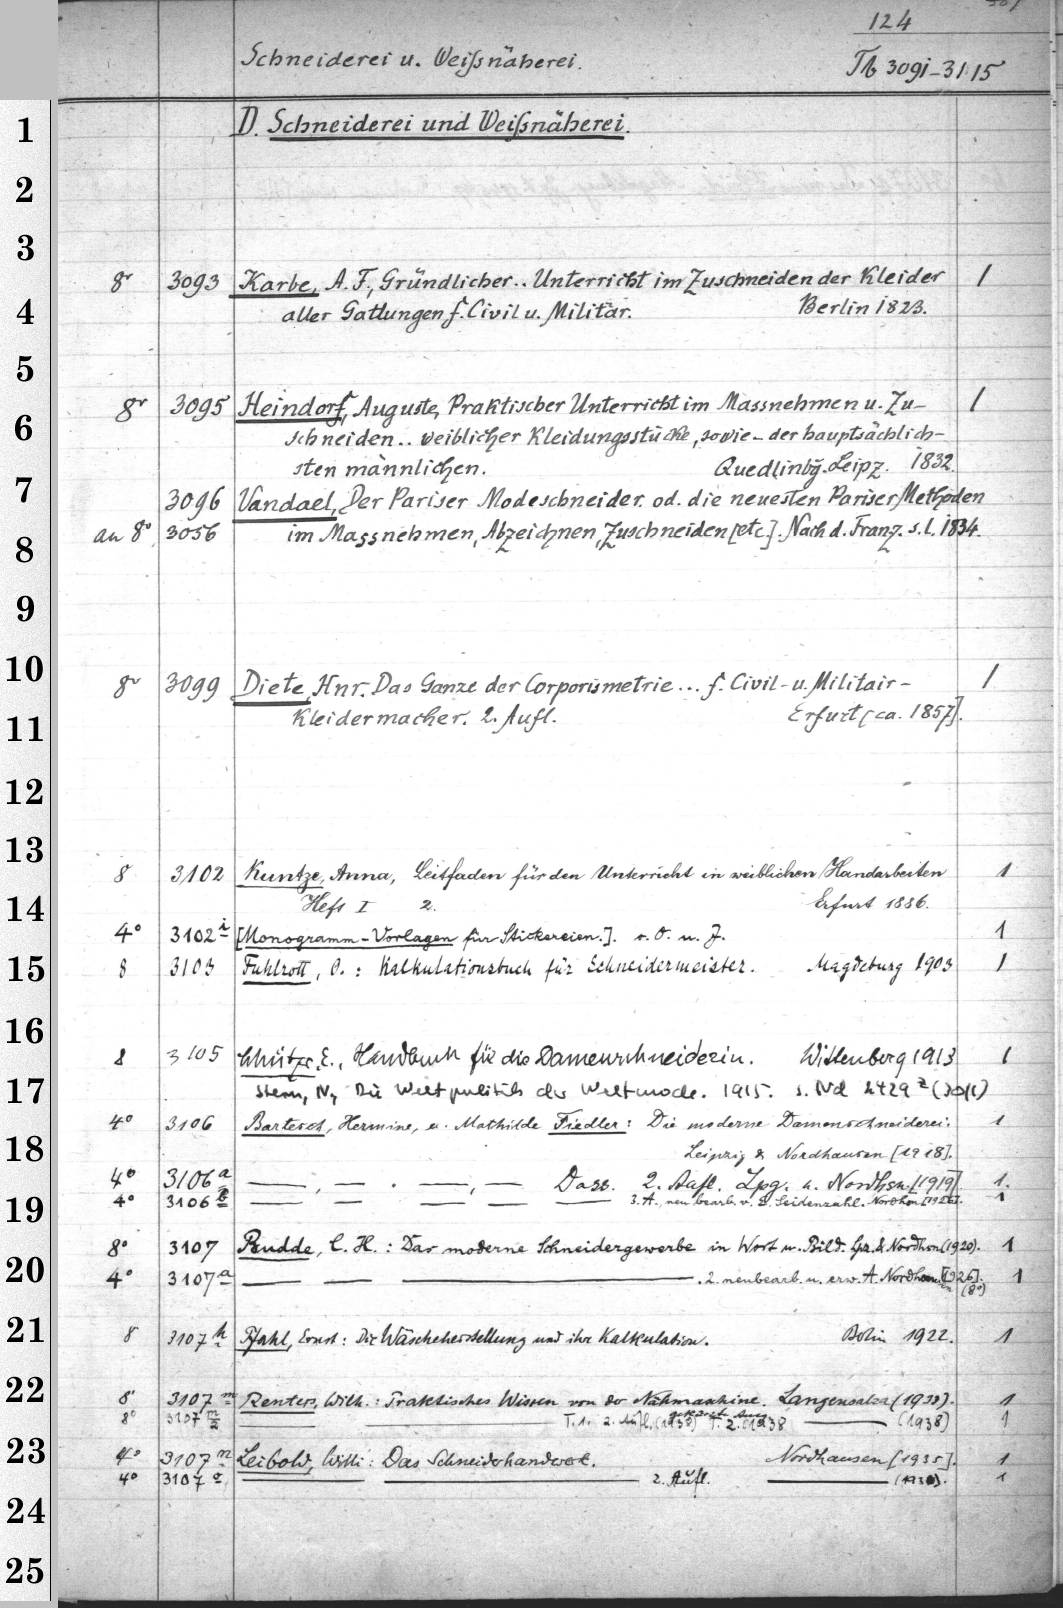 124
Schneiderei u. Weißnäherei. Tb 3091-3115
1 D. Schneiderei und Weißnäherei.
2
3
8r 3093 Karbe, A. F., Gründlicher.. Unterricht im Zuschneiden der Kleider 1
4 aller Gattungen f. Civil u. Militär. Berlin 1823.
5
8r 3095 Heindorf, Auguste, Praktischer Unterricht im Massnehmen u. Zu- 1
6 schneiden.. weiblicher Kleidungsstücke, sowie - der hauptsächlich-
sten männlichen. Quedlinbg. Leipz. 1832.
7 3096 Vandael, Der Pariser Modeschneider. od. die neuesten Pariser Methoden
8 an 8° 3056 im Massnehmen, Abzeichnen, Zuschneiden [etc.]. Nach d. Franz. s. l. 1834.
9
10 8r 3099 Diete, Hnr. Das Ganze der Corporismetrie... f. Civil- u. Militair- 1
11 Kleidermacher. 2. Aufl. Erfurt [ca. 1857].
12
13 8 3102 Kuntze, Anna, Leitfaden für den Unterricht in weiblichen Handarbeiten 1
14 Heft I 2. Erfurt 1886.
4° 3102 i [Monogramm-Vorlagen für Stickereien.]. o. O. u. J. 1
15 8 3103 Fuhlrott, O.: Kalkulationsbuch für Schneidermeister. Magdeburg 1903 1
16
8 3105 E., Handbuch für die Damenschneiderin. Wittenberg 1913 1
17 Stern, N., Die Weltpolitik der Weltmode. 1915. s. Nd 2429 z (30/1)
4° 3106 Bartesch, Hermine, u. Mathilde Fiedler: Die moderne Damenschneiderei. 1
18 Leipzig & Nordhausen [1918].
4° 3106 a —, — . —, — Dass. 2. Aufl. Lpg. u. Nordhsn. [1919] 1.
19 4° 3106 b — — — — — 3. A., neu bearb. v. Seidenzahl. Nordhsn. 1
8° 3107 Budde, C. H.: Das moderne Schneidergewerbe in Wort u. Bild. Lpz. & Nordhsn (1920). 1
20 4° 3107 a — — — . 2. neubearb. u. erw. A. Nordhsn. [1926]. 1
(8°)
21 8 3107 h Pfahl, Ernst: Die Wäscheherstellung und ihre Kalkulation. Berlin 1922. 1
22 8° 3107 m Renters, Wilh.: Praktisches Wissen von der Nähmaschine. Langensalza (1933). 1
8° 3107 m/2 — T. 1. 2. Aufl. T. 2. 1938 — (1938) 1
23 4° 3107 n Leibold, Willi: Das Schneiderhandwerk. Nordhausen [1935]. 1
4° 3107 — — — 2. Aufl. — 1
24
25